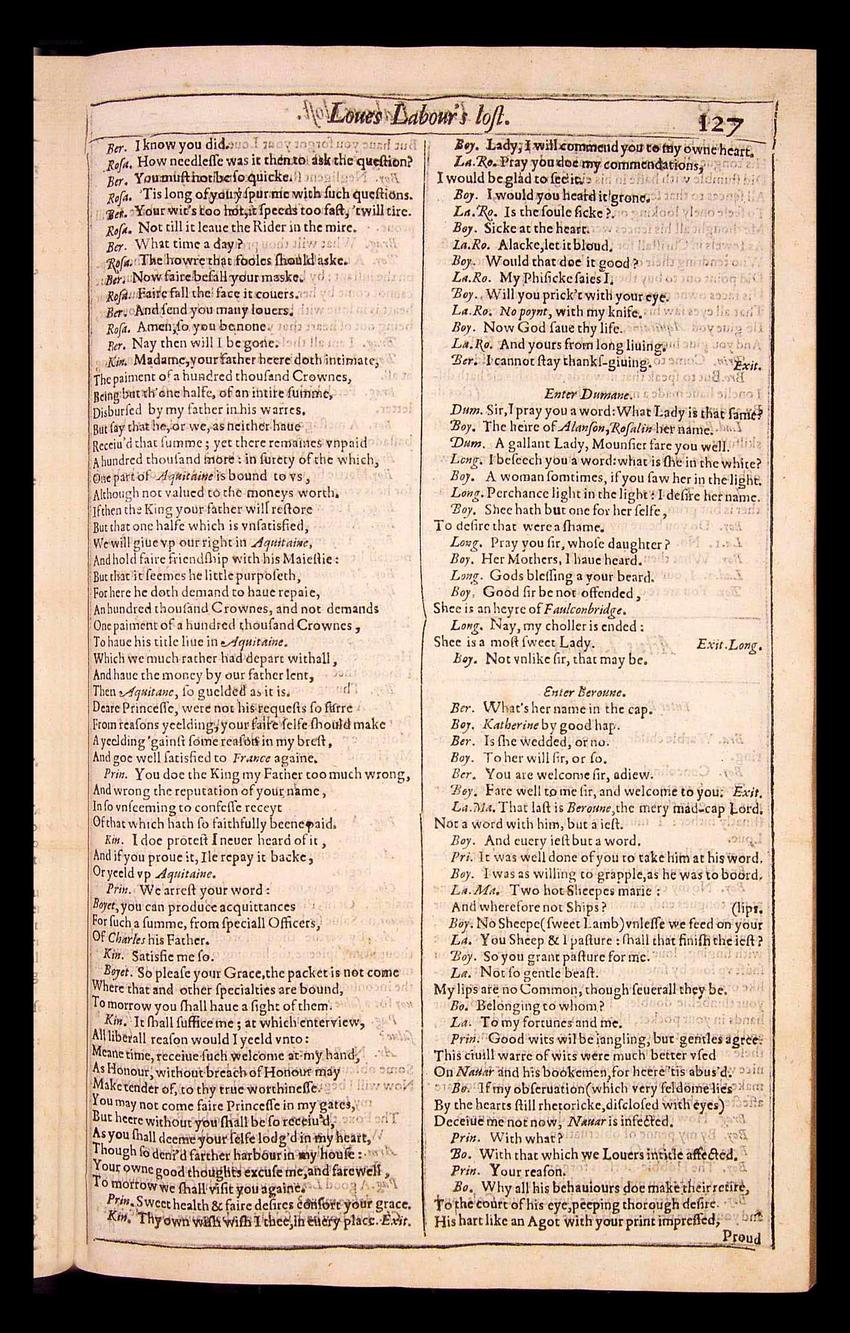 Loues Labour's lost.
127
Ber. I know you did.
Rosa. How needlesse was it then to ask the question?
Ber. You must not be so quicke.
Rosa. 'Tis long of you yt spur me with such questions.
Ber. Your wit's too hot, it speeds too fast, 'twill tire.
Rosa. Not till it leaue the Rider in the mire.
Ber. What time a day?
Rosa. The howre that fooles should aske.
Ber. Now faire befall your maske.
Rosa. Faire fall the face it couers.
Ber. And send you many louers.
Rosa. Amen, so you be none.
Ber. Nay then will I be gone.
Kin. Madame, your father heere doth intimate,
The paiment of a hundred thousand Crownes,
Being but th'one halfe, of an intire summe,
Disbursed by my father in his warres.
But say that he, or we, as neither haue
Receiu'd that summe; yet there remaines vnpaid
A hundred thousand more: in surety of the which,
One part of Aquitaine is bound to vs,
Although not valued to the moneys worth.
If then the King your father will restore
But that one halfe which is vnsatisfied,
We will giue vp our right in Aquitaine,
And hold faire friendship with his Maiestie:
But that it seemes he little purposeth,
For here he doth demand to haue repaie,
An hundred thousand Crownes, and not demands
One paiment of a hundred thousand Crownes,
To haue his title liue in Aquitaine.
Which we much rather had depart withall,
And haue the money by our father lent,
Then Aquitane, so guelded as it is.
Deare Princesse, were not his requests so farre
From reasons yeelding, your faire selfe should make
A yeelding 'gainst some reason in my brest,
And goe well satisfied to France againe.
Prin. You doe the King my Father too much wrong,
And wrong the reputation of your name,
In so vnseeming to confesse receyt
Of that which hath so faithfully beene paid.
Kin. I doe protest I neuer heard of it,
And if you proue it, Ile repay it backe,
Or yeeld vp Aquitaine.
Prin. We arrest your word:
Boyet, you can produce acquittances
For such a summe, from speciall Officers,
Of Charles his Father.
Kin. Satisfie me so.
Boyet. So please your Grace, the packet is not come
Where that and other specialties are bound,
To morrow you shall haue a sight of them.
Kin. It shall suffice me; at which enterview,
All liberall reason would I yeeld vnto:
Meane time, receiue such welcome at my hand,
As Honour, without breach of Honour may
Make tender of, to thy true worthinesse.
You may not come faire Princesse in my gates,
But heere without you shall be so receiu'd,
As you shall deeme your selfe lodg'd in my heart,
Though so deni'd farther harbour in my house:
Your owne good thoughts excuse me, and farewell,
To morrow we shall visit you againe.
Prin. Sweet health & faire desires consort your grace.
Kin. Thy own wish wish I thee, in euery place. Exit.
Boy. Lady, I will commend you to my owne heart.
La.Ro. Pray you doe my commendations,
I would be glad to see it.
Boy. I would you heard it grone.
La.Ro. Is the soule sicke?
Boy. Sicke at the heart.
La.Ro. Alacke, let it bloud.
Boy. Would that doe it good?
La.Ro. My Phisicke saies I.
Boy. Will you prick't with your eye.
La.Ro. No poynt, with my knife.
Boy. Now God saue thy life.
La.Ro. And yours from long liuing.
Ber. I cannot stay thanks-giuing. Exit.
Enter Dumane.
Dum. Sir, I pray you a word: What Lady is that same?
Boy. The heire of Alanson, Rosalin her name.
Dum. A gallant Lady, Mounsier fare you well.
Long. I beseech you a word: what is she in the white?
Boy. A woman somtimes, if you saw her in the light.
Long. Perchance light in the light: I desire her name.
Boy. Shee hath but one for her selfe,
To desire that were a shame.
Long. Pray you sir, whose daughter?
Boy. Her Mothers, I haue heard.
Long. Gods blessing a your beard.
Boy. Good sir be not offended,
Shee is an heyre of Faulconbridge.
Long. Nay, my choller is ended:
Shee is a most sweet Lady. Exit. Long.
Boy. Not vnlike sir, that may be.
Enter Beroune.
Ber. What's her name in the cap.
Boy. Katherine by good hap.
Ber. Is she wedded, or no.
Boy. To her will sir, or so.
Ber. You are welcome sir, adiew.
Boy. Fare well to me sir, and welcome to you. Exit.
La.Ma. That last is Beroune, the mery mad-cap Lord.
Not a word with him, but a iest.
Boy. And euery iest but a word.
Pri. It was well done of you to take him at his word.
Boy. I was as willing to grapple, as he was to boord.
La.Ma. Two hot Sheepes marie:
And wherefore not Ships? (lips.
Boy. No Sheepe (sweet Lamb) vnlesse we feed on your
La. You Sheep & I pasture: shall that finish the iest?
Boy. So you grant pasture for me.
La. Not so gentle beast.
My lips are no Common, though seuerall they be.
Bo. Belonging to whom?
La. To my fortunes and me.
Prin. Good wits wil be iangling, but gentles agree.
This ciuill warre of wits were much better vsed
On Nauar and his bookemen, for heere 'tis abus'd.
Bo. If my obseruation (which very seldome lies
By the hearts still rhetoricke, disclosed with eyes)
Deceiue me not now, Nauar is infected.
Prin. With what?
Bo. With that which we Louers intitle affected.
Prin. Your reason.
Bo. Why all his behauiours doe make their retire,
To the court of his eye, peeping thorough desire.
His hart like an Agot with your print impressed,
Proud